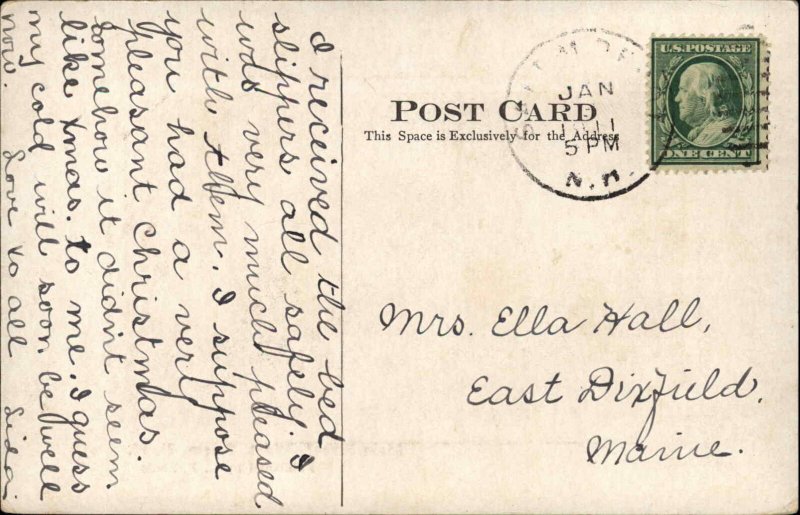 I received the bed
slippers all safely. I
was very much pleased
with them. I suppose
you had a very
pleasant Christmas
somehow it didn't seem
like Xmas. to me. I guess
my cold will soon be well
now. Love to all Lida
POST CARD
This Space is Exclusively for the Address
JAN
11
5 PM
N.H.
U.S. POSTAGE
ONE CENT
Mrs. Ella Hall,
East Dixfield.
Maine.